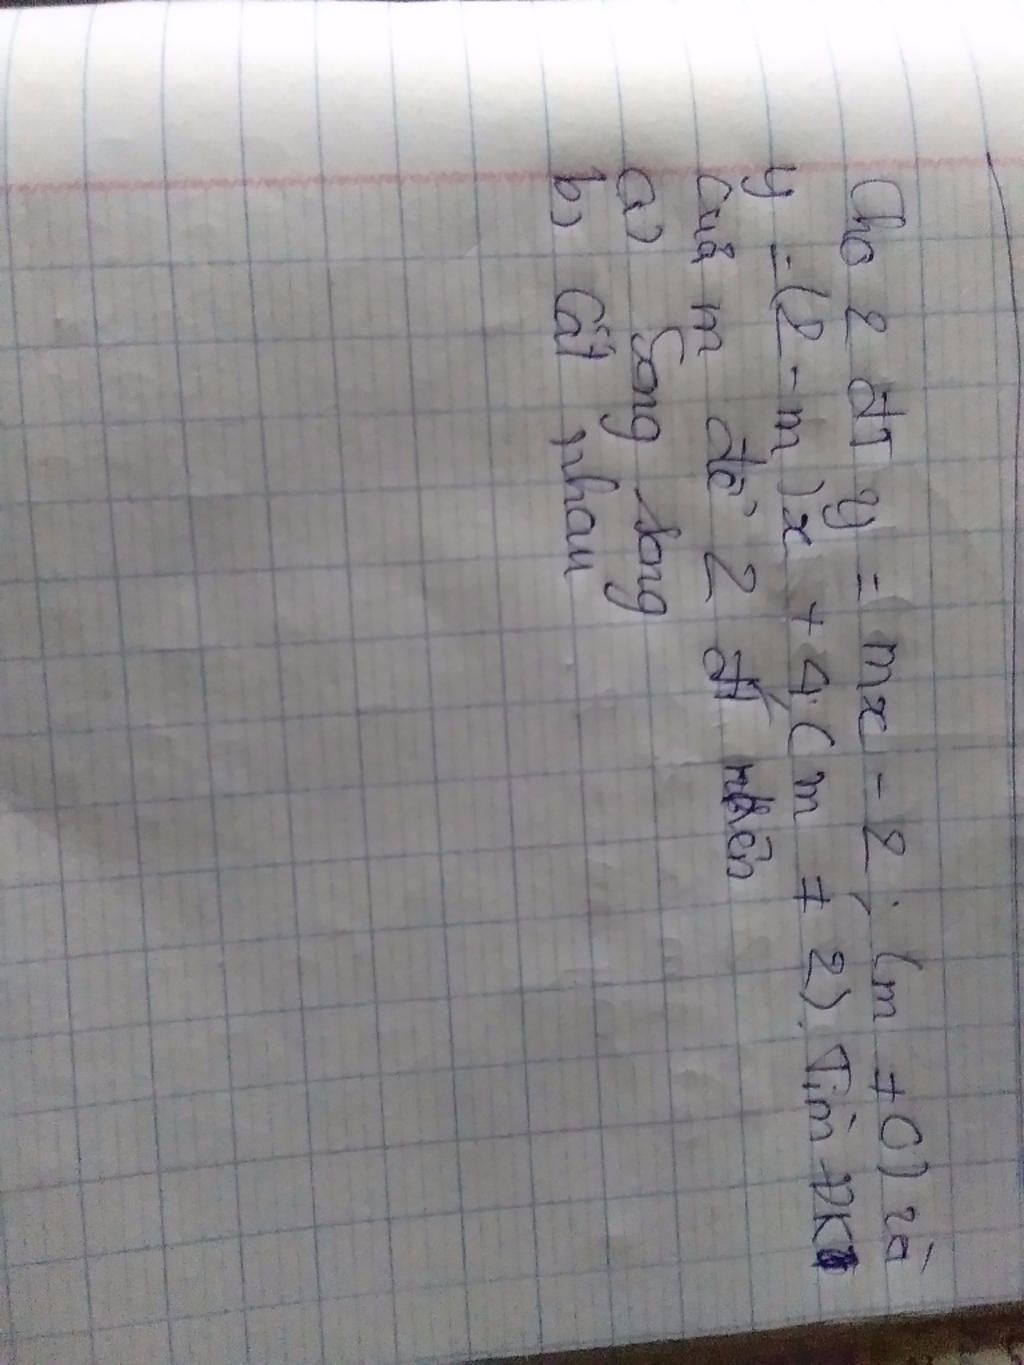 Cho 2 đt y = mx - 2 ; (m ≠ 0) và
y = (2 - m)x + 4. (m ≠ 2). Tìm ĐK
của m để 2 đt trên
a) Song song
b) Cắt nhau